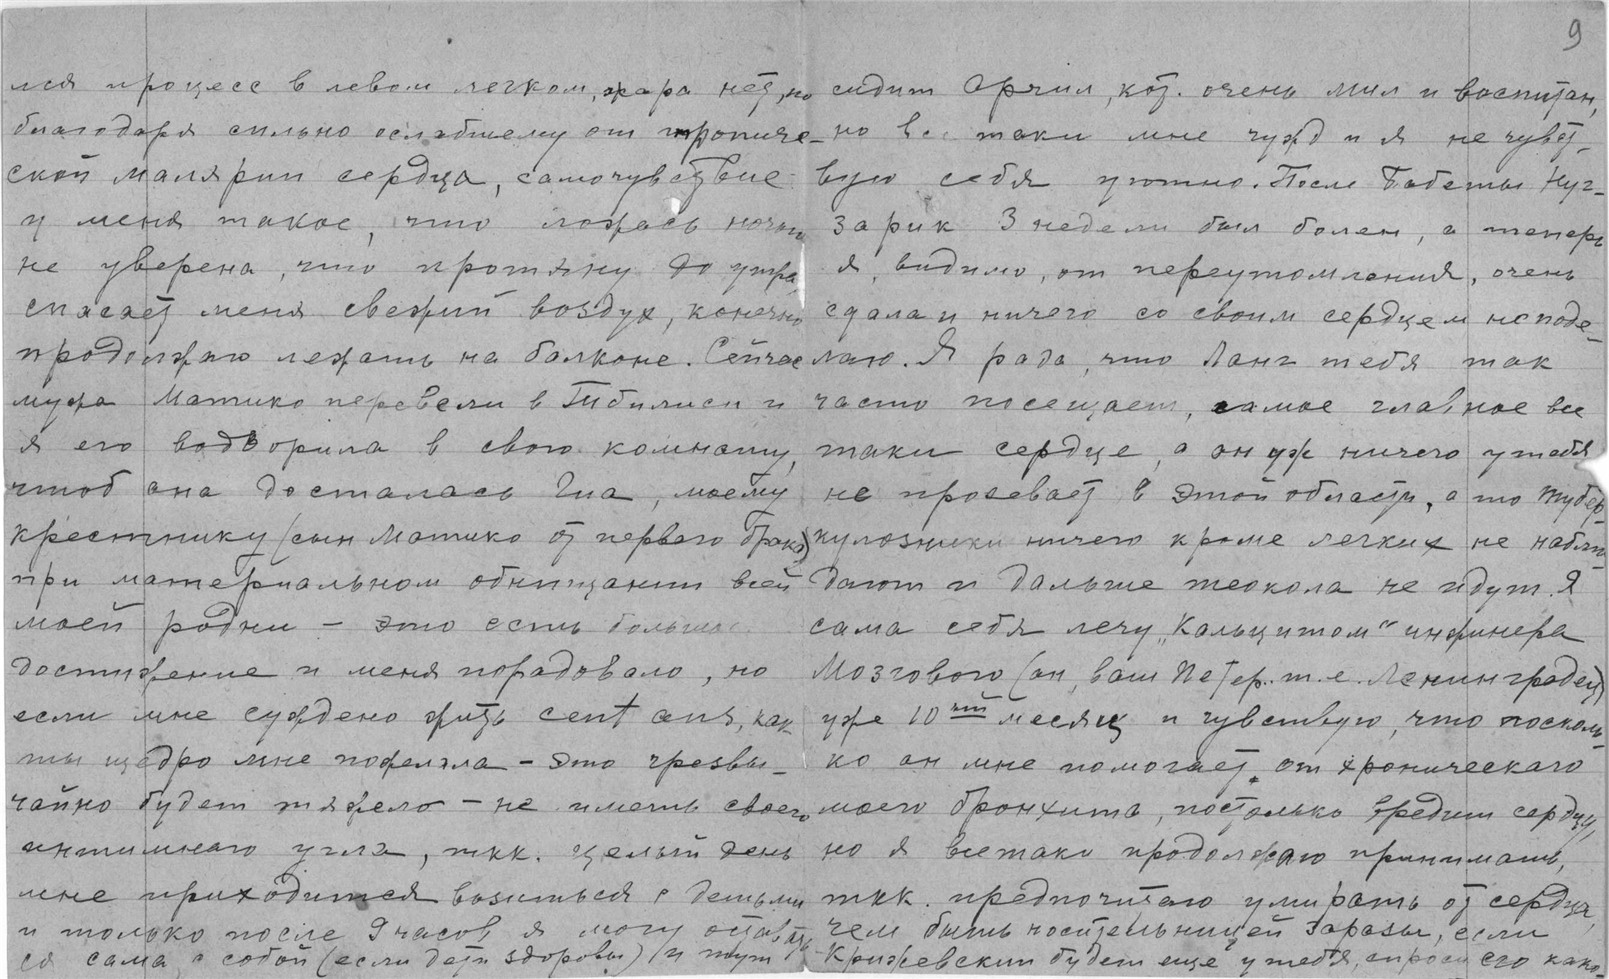 9
лся процесс в левом легком, жара нет, но
благодаря сильно ослабшему от тропиче-
ской малярии сердца, самочувствие
у меня такое, что ложась ночью
не уверена, что протяну до утра
спасает меня свежий воздух, конечно
продолжаю лежать на балконе. Сейчас
мужа Матико перевели в Тбилиси и
я его водворила в свою комнату,
чтоб она досталась Гиа, моему
крестнику (сын Матико от первого брака)
при материальном обнищании всей
моей родни – это есть большое
достижение и меня порадовало, но
если мне суждено жить cent ans, как
ты щедро мне пожелала – это чрезвы-
чайно будет тяжело – не иметь своего
интимнаго угла, ткк. целый день
мне приходится возиться с детьми
и только после 9 часов я могу остават
ся сама с собой (если дети здоровы) и тут
сидит Арчил, кот. очень мил и воспитан,
но все таки мне чужд и я не чувст-
вую себя уютно. После Бабеты Нуг-
зарик 3 недели был болен, а теперь
я, видимо, от переутомления, очень
сдала и ничего со своим сердцем не поде-
лаю. Я рада, что Ланг тебя так
часто посещает, самое главное все
таки сердце, а он уж ничего у тебя
не прозевает в этой области, а то тубер-
кулозники ничего кроме легких не наблю-
дают и дальше теокола не идут. Я
сама себя лечу „Кальцитом" инжинера
Мозгового (он, ваш Петер. т.е. Ленинградец)
уже 10ый месяц и чувствую, что посколь-
ко он мне помогает от хроническаго
моего бронхита, постолько вредит сердцу,
но я всетаки продолжаю принимать,
ткк. предпочитаю умирать от сердца,
чем быть носительницей заразы, если
Крижевский будет еще у тебя, спроси его како